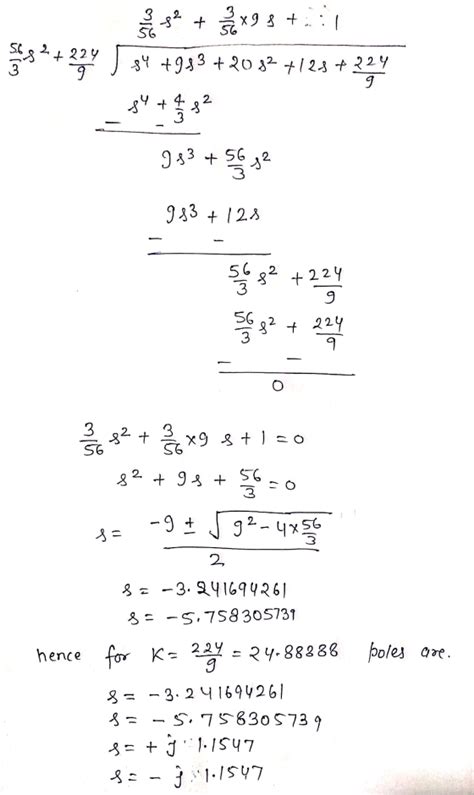 3/56 s² + 3/56 × 9 s + 1
56/3 s² + 224/9 √ s⁴ + 9s³ + 20s² + 12s + 224/9
s⁴ + 4/3 s²
− −
9s³ + 56/3 s²
9s³ + 12s
− −
56/3 s² + 224/9
56/3 s² + 224/9
− −
0
3/56 s² + 3/56 × 9 s + 1 = 0
s² + 9s + 56/3 = 0
s = (-9 ± √(9² - 4 × 56/3)) / 2
s = -3.241694261
s = -5.758305739
hence for K = 224/9 = 24.88888 poles are.
s = -3.241694261
s = -5.758305739
s = + j 1.1547
s = - j 1.1547